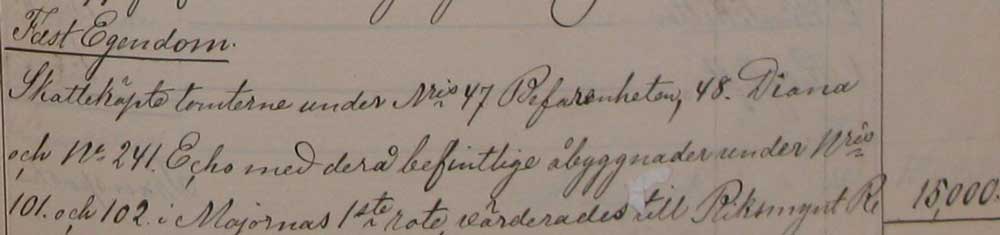 Fast Egendom.
Skatteköpte tomterne under Nris 47 Befarenheten, 48. Diana
och No 241. Echo med derå befintlige åbyggnader under Nris
101. och 102. i Majornas 1ste rote, värderades till Riksmynt Rd 15,000.